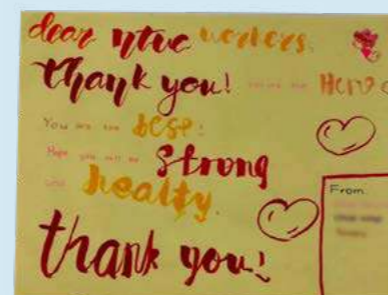 dear ntuc workers,
thank you! Hero
You are the best!
Hope you will be strong
and healty.
thank you!
From